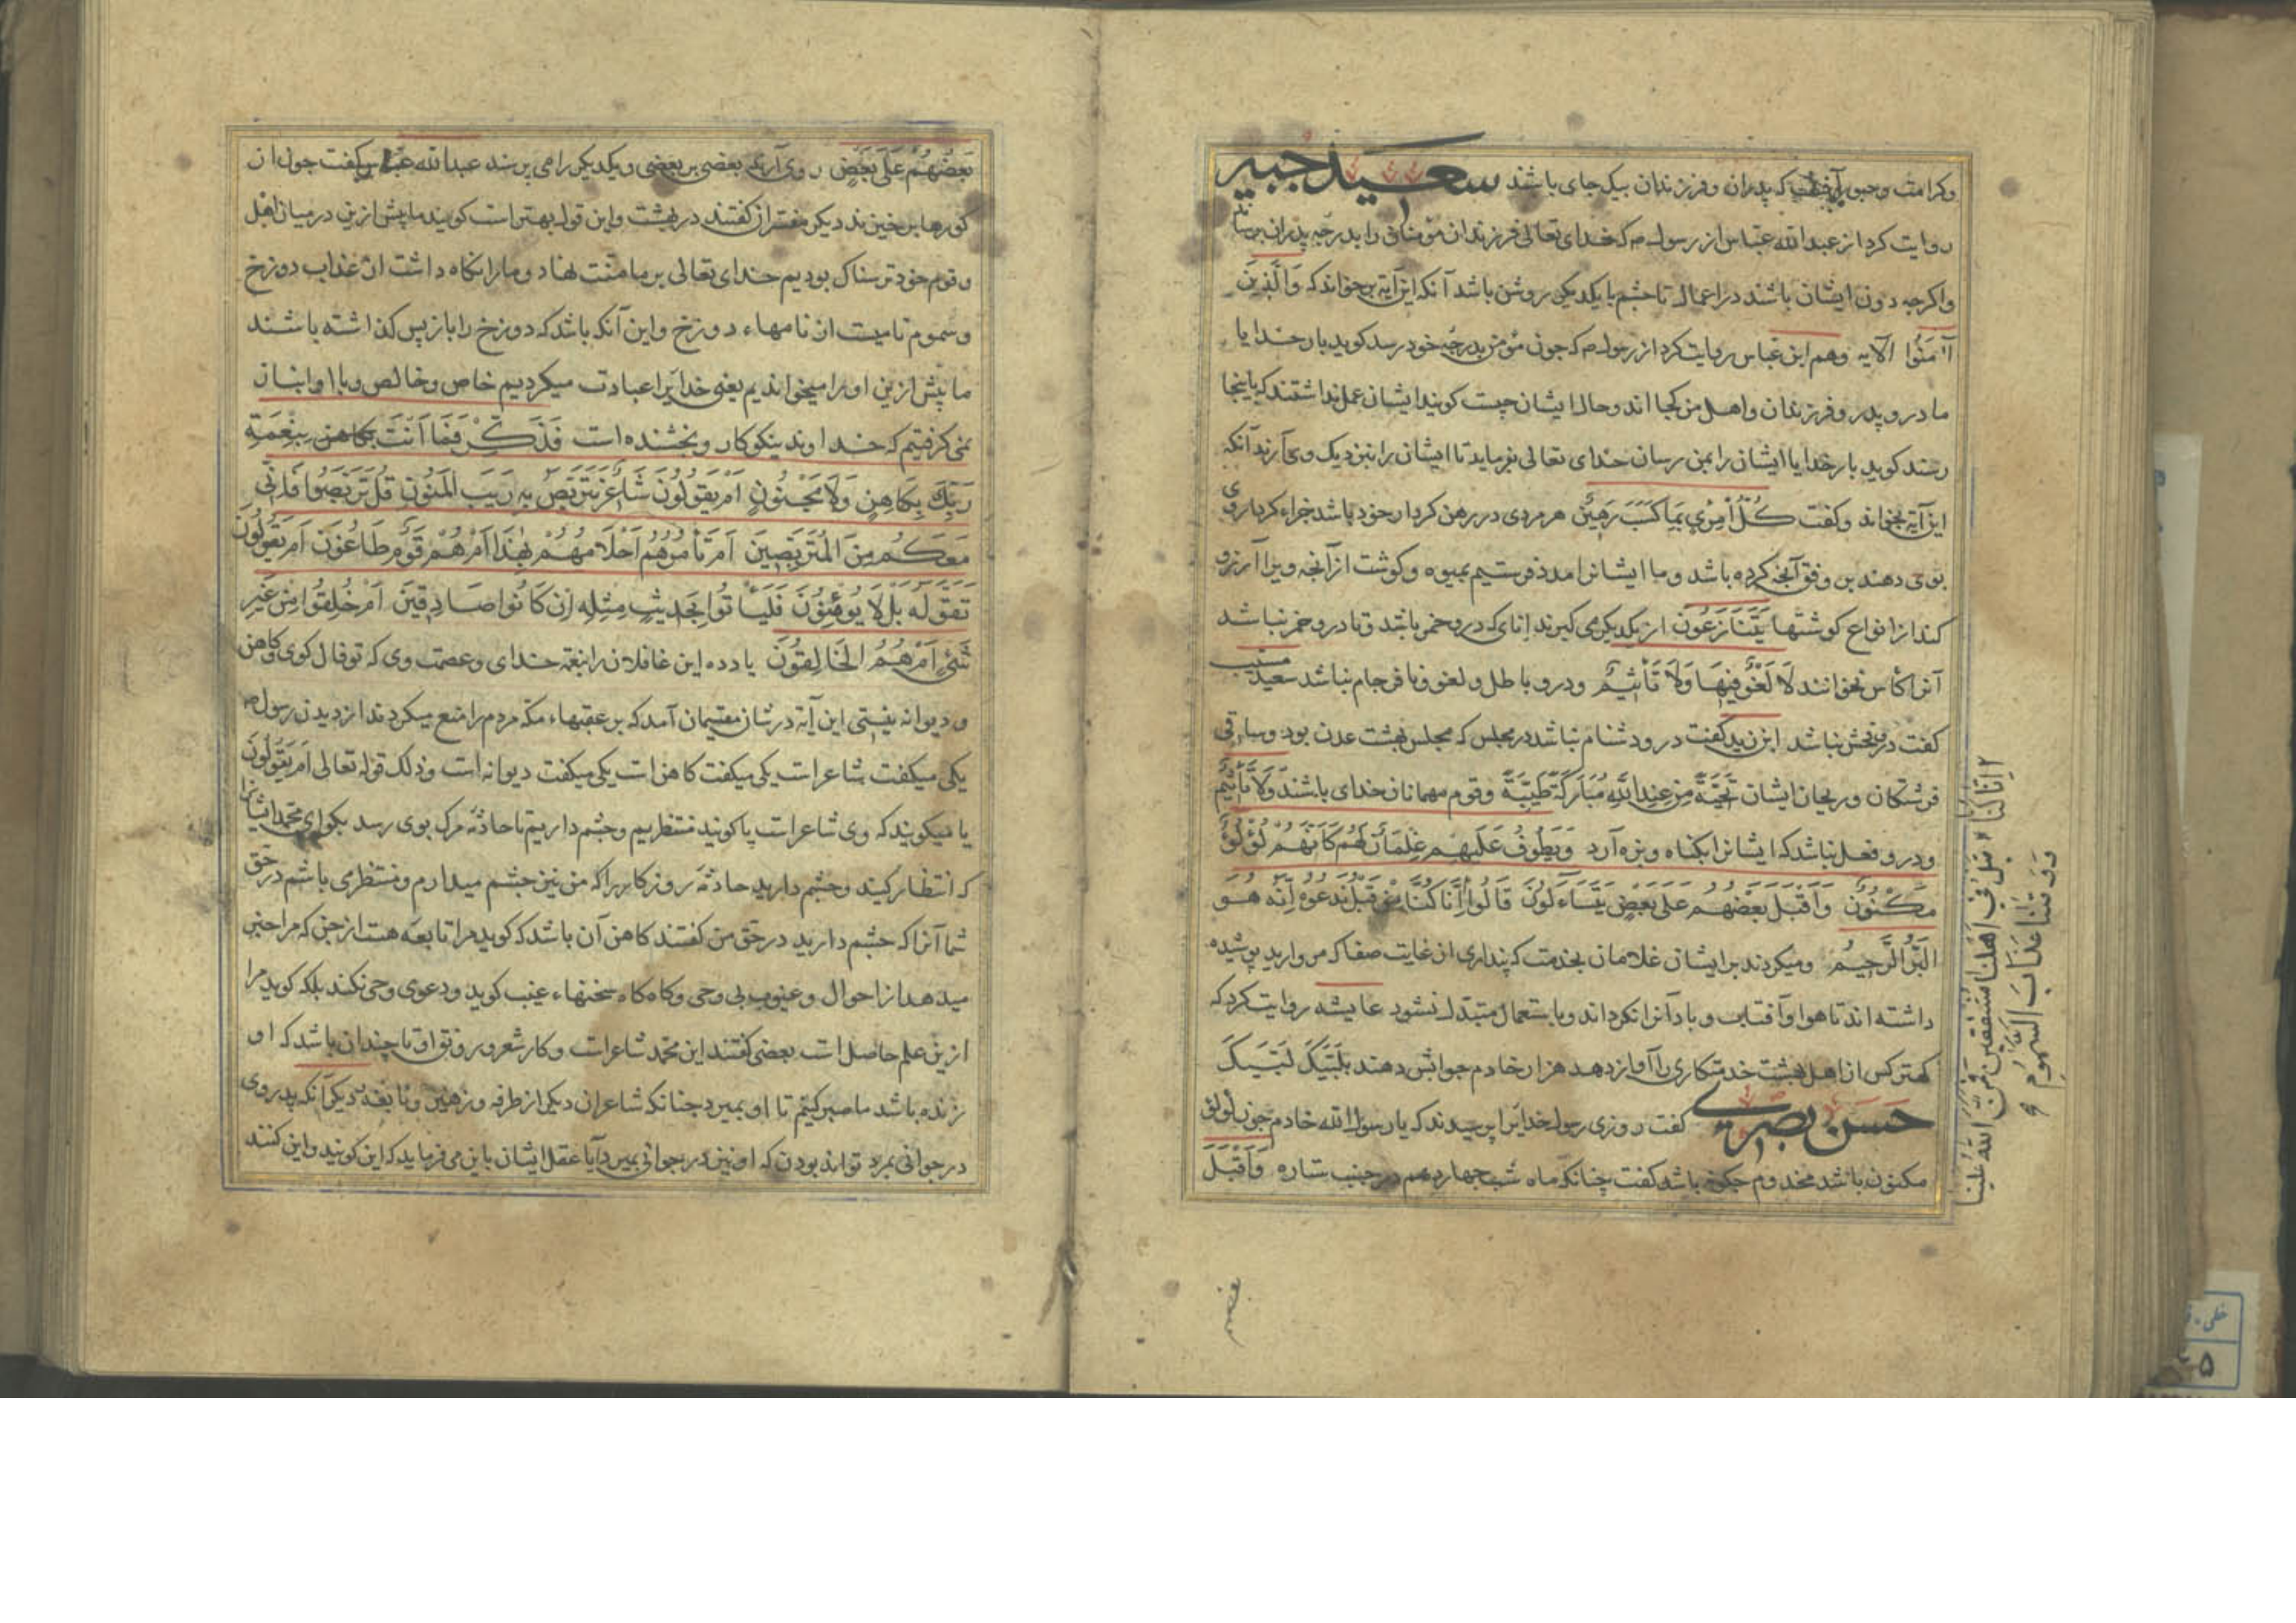 وکرامت وحبور آنجاست که پدران وفرزندان بیک جای باشند سعید جبیر
روایت کرد از عبدالله عباس از رسول م که خدای تعالی فرزندان مؤمنان را بدرجه پدران برساند
واکرچه دون ایشان باشند در اعمال تا چشم با یکدیکر روشن باشد آنکه این آیه برخواند که وَالَّذِينَ
آمَنُوا الآیه وهم ابن عباس روایت کرد از رسول م که چون مؤمن بدرجه خود رسد کوید بار خدایا
مادر وپدر وفرزندان واهل من کجااند وحال ایشان چیست کویند ایشان عمل نداشتند که باینجا
رسند کوید بار خدایا ایشان را بمن رسان خدای تعالی بفرماید تا ایشان را بنزدیک وی آرند آنکه
این آیه بخواند وکفت كُلُّ امْرِئٍ بِمَا كَسَبَ رَهِينٌ هر مردی در رهن کردار خود باشد جزاء کردار وی
بوی دهند بر وفق آنچه کرده باشد وما ایشانرا مدد فرستیم بمیوه وکوشت از آنچه ویرا آرزو
کند از انواع کوشتها يَتَنَازَعُونَ از یکدیکر می کیرند انای که درو خمر باشد وتا درو خمر نباشد
آنرا کأس نخوانند لَا لَغْوٌ فِيهَا وَلَا تَأْثِيمٌ ودرو باطل ولغو ونافرجام نباشد سعید مسیب
کفت درو فحش نباشد ابن زید کفت درو دشنام نباشد در مجلس که مجلس بهشت عدن بود وساقی
فرشتکان وریحان ایشان تَحِيَّةً مِنْ عِنْدِ اللَّهِ مُبَارَكَةً طَيِّبَةً وقوم مهمانان خدای باشند وَلَا تَأْثِيمٌ
ودرو فعل نباشد که ایشانرا بکناه وبزه آرد وَيَطُوفُ عَلَيْهِمْ غِلْمَانٌ لَهُمْ كَأَنَّهُمْ لُؤْلُؤٌ
مَكْنُونٌ وَأَقْبَلَ بَعْضُهُمْ عَلَى بَعْضٍ يَتَسَاءَلُونَ قَالُوا إِنَّا كُنَّا مِنْ قَبْلُ نَدْعُوهُ إِنَّهُ هُوَ
الْبَرُّ الرَّحِيمُ ومیکردند بر ایشان غلامان بخدمت که پنداری از غایت صفا که مروارید پوشیده
داشته اند تا هوا وآفتاب وباد آنرا نکرداند وباستعمال متبذل نشود عایشه روایت کرد که
کهتر کس از اهل بهشت خدمتکاری را آواز دهد هزار خادم جوابش دهند بلَبَّيْكَ لَبَّيْكَ
حسن بصری کفت روزی رسول خدایرا پرسیدند که یا رسول الله خادم چون لؤلؤ
مکنون باشد مخدوم چکونه باشد کفت چنانکه ماه شب چهاردهم در جنب ستاره وَأَقْبَلَ
إِنَّا كُنَّا قَبْلُ فِي أَهْلِنَا مُشْفِقِينَ فَمَنَّ اللَّهُ عَلَيْنَا
وَوَقَانَا عَذَابَ السَّمُومِ
بَعْضُهُمْ عَلَى بَعْضٍ روی آرند بعضی بر بعضی ویکدیکر را می پرسند عبدالله عباس کفت چون از
کورها بر خیزند دیکر مفسران کفتند در بهشت واین قول بهتر است کویند ما پیش از این در میان اهل
وقوم خود ترسناک بودیم خدای تعالی بر ما منت نهاد وما را نکاه داشت از عذاب دوزخ
وسموم نامیست از نامهاء دوزخ واین آنکه باشد که دوزخ را باز پس کذاشته باشند
ما پیش از این او را میخواندیم یعنی خدایرا عبادت میکردیم خاص وخالص وبا او انباز
نمی کرفتیم که خداوند نیکوکار وبخشنده است فَذَكِّرْ فَمَا أَنْتَ بِنِعْمَةِ
رَبِّكَ بِكَاهِنٍ وَلَا مَجْنُونٍ أَمْ يَقُولُونَ شَاعِرٌ نَتَرَبَّصُ بِهِ رَيْبَ الْمَنُونِ قُلْ تَرَبَّصُوا فَإِنِّي
مَعَكُمْ مِنَ الْمُتَرَبِّصِينَ أَمْ تَأْمُرُهُمْ أَحْلَامُهُمْ بِهَذَا أَمْ هُمْ قَوْمٌ طَاغُونَ أَمْ يَقُولُونَ
تَقَوَّلَهُ بَلْ لَا يُؤْمِنُونَ فَلْيَأْتُوا بِحَدِيثٍ مِثْلِهِ إِنْ كَانُوا صَادِقِينَ أَمْ خُلِقُوا مِنْ غَيْرِ
شَيْءٍ أَمْ هُمُ الْخَالِقُونَ یاد ده این غافلان را بنعمة خدای وعصمت وی که تو فال کوی وکاهن
ودیوانه نیستی این آیه در شان مقتسمان آمد که بر عقبهاء مکه مردم را منع میکردند از دیدن رسول م
یکی میکفت شاعر است یکی میکفت کاهن است یکی میکفت دیوانه است وذلک قوله تعالی أَمْ يَقُولُونَ
یا میکویند که وی شاعر است یا کویند منتظریم وچشم داریم تا حادثه مرک بوی رسد بکو ای محمد ایشانرا
که انتظار کنید وچشم دارید حادثه روزکار را که من نیز چشم میدارم ومنتظر می باشم در حق
شما آنرا که چشم دارید در حق من کفتند کاهن آن باشد که کوید مرا تابعه هست از جن که مرا خبر
میدهد از احوال وغیوب بی وحی وکاه کاه سخنهاء غیب کوید ودعوی وحی نکند بلکه کوید مرا
از این علم حاصل است بعضی کفتند این محمد شاعر است وکار شعر ورونق او تا چندان باشد که او
زنده باشد ما صبر کنیم تا او بمیرد چنانکه شاعران دیکر از طرفه وزهیر ونابغه دیکر آنکه پدر وی
در جوانی بمرد تواند بودن که او نیز در جوانی بمیرد آیا عقل ایشان باین می فرماید که این کویند واین کنند
خطی
۵